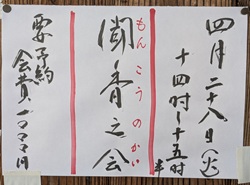 四月二十八日(火)
十四时〜十五时半
もんこうのかい
聞香之会
要予約
会費二〇〇〇円